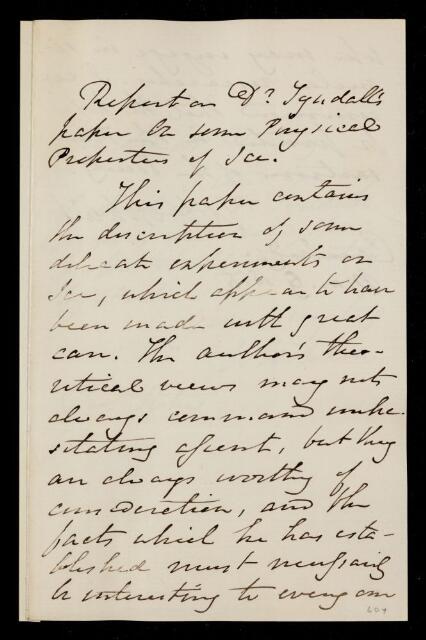 Report on Dr. Tyndall's
paper On some Physical
Properties of Ice.
This paper contains
the description of some
delicate experiments on
Ice, which appear to have
been made with great
care. The author's theo-
retical views may not
always command unhe-
sitating assent, but they
are always worthy of
consideration, and the
facts which he has esta-
blished must necessarily
be interesting to every one